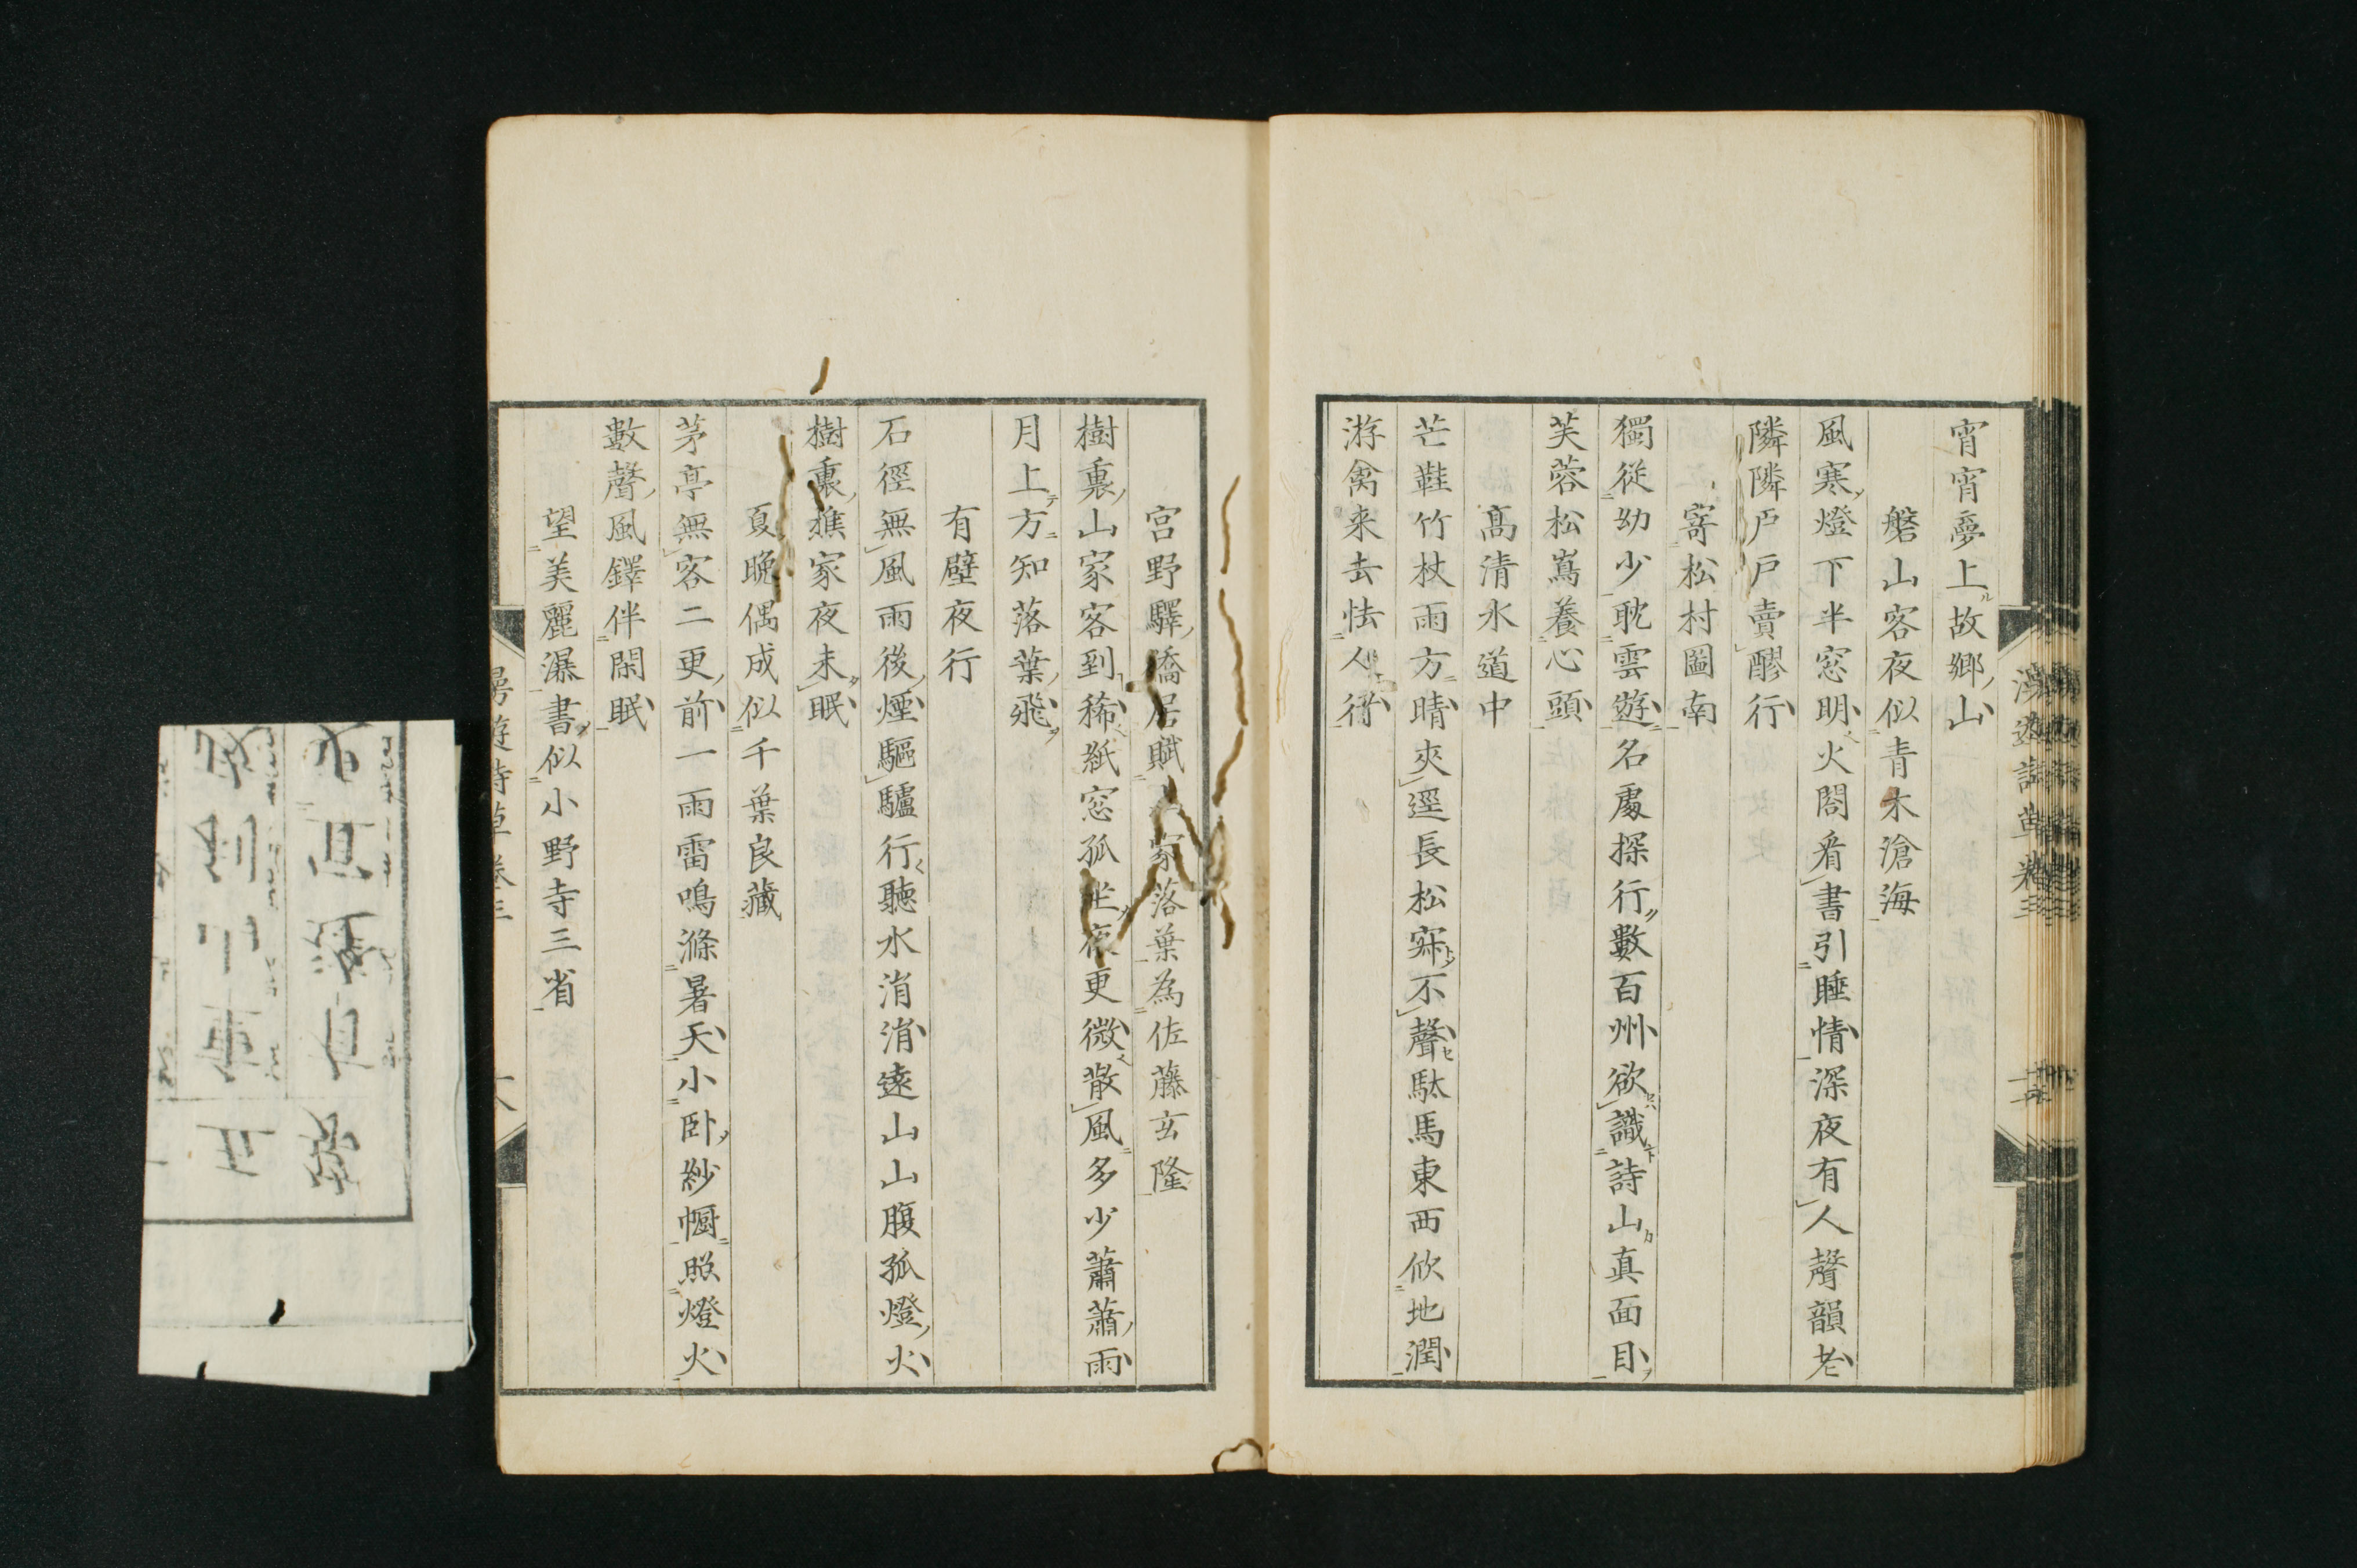 宵宵夢上故郷山
磐山客夜似青木滄海
風寒燈下半窓明火閤看書引睡情深夜有人聲韻老
隣隣戸戸賣醪行
寄松村圖南
獨従幼少耽雲遊名處探行數百州欲識詩山真面目
芙蓉松嶌養心頭
高清水道中
芒鞋竹杖雨方晴夾逕長松寂不聲駄馬東西欣地潤
游禽来去怯人行
宮野驛僑居賦家落葉為佐藤玄隆
樹裏山家客到稀紙窓孤坐夜更微散風多少蕭蕭雨
月上方知落葉飛
有壁夜行
石徑無風雨後煙驅驢行聽水涓涓遠山山腹孤燈火
樹裏樵家夜未眠
夏晩偶成似千葉良蔵
茅亭無客二更前一雨雷鳴滌暑天小卧紗幮照燈火
數聲風鐸伴閑眠
望美麗瀑書似小野寺三省